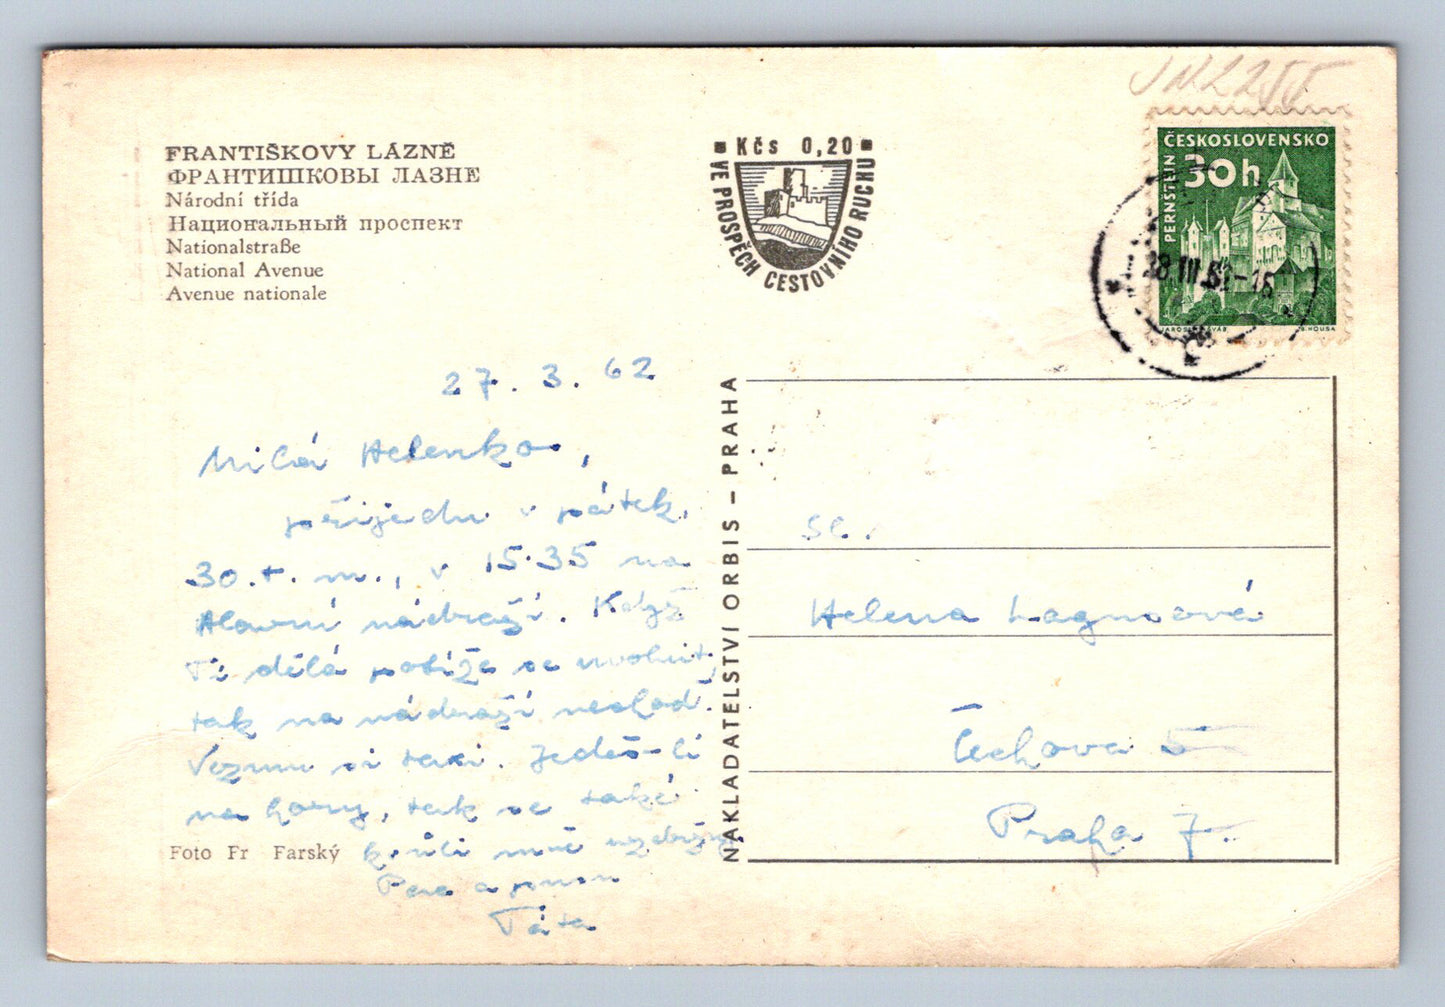 FRANTIŠKOVY LÁZNĚ
ФРАНТИШКОВЫ ЛАЗНЕ
Národní třída
Национальный проспект
Nationalstraße
National Avenue
Avenue nationale
Kčs 0,20
VE PROSPĚCH CESTOVNÍHO RUCHU
ČESKOSLOVENSKO
30h
PERNŠTEJN
28 III 62-16
27. 3. 62
Milá Helenko,
přijedu v pátek,
30. t. m., v 15.35 na
Hlavní nádraží. Když
Ti dělá potíže se uvolnit,
tak na nádraží nechoď.
Vezmu si taxi. Jedeš-li
na hory, tak se také
kvůli mně nezdržuj.
Táta
Foto Fr Farský
NAKLADATELSTVÍ ORBIS – PRAHA
Sl.
Helena
Čechova 5
Praha 7.